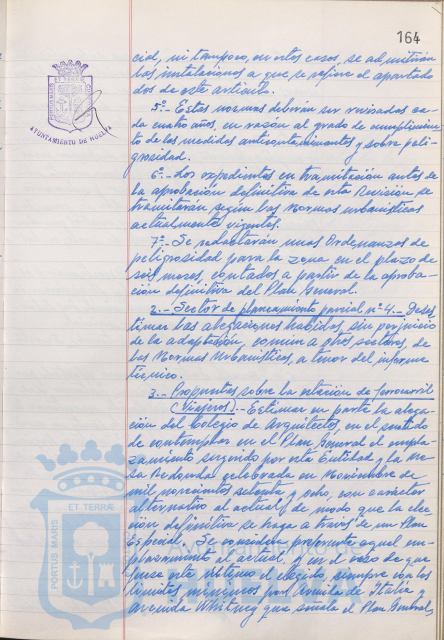 164
cial, ni tampoco, en estos casos, se admitirán
las instalaciones a que se refiere el apartado
dos de este artículo.
5º.- Estas normas deberán ser revisadas ca-
da cuatro años, en razón al grado de cumplimien-
to de las medidas anticontaminantes y sobre peli-
grosidad.
6º.- Los expedientes en tramitación antes de
la aprobación definitiva de esta Revisión se
tramitarán según las Normas urbanísticas
actualmente vigentes.
7º.- Se redactarán unas Ordenanzas de
peligrosidad para la zona en el plazo de
seis meses, contados a partir de la aproba-
ción definitiva del Plan General.
2.- Sector de planeamiento parcial nº 4.- Deses-
timar las alegaciones habidas, sin perjuicio
de la adaptación, común a otros sectores, de
las Normas Urbanísticas, a tenor del informe
técnico.
3.- Propuestas sobre la estación de ferrocarril
(Viajeros).- Estimar en parte la alega-
ción del Colegio de Arquitectos, en el sentido
de contemplar en el Plan General el empla-
zamiento sugerido por esta Entidad y la Me-
sa Redonda celebrada en Noviembre de
mil novecientos setenta y ocho, con carácter
alternativo al actual, de modo que la elec-
ción definitiva se haga a través de un Plan
Especial. Se considera preferente aquel em-
plazamiento al actual, y en el caso de que
fuese este último el elegido, siempre con los
límites mínimos por Avenida de Italia y
Avenida Whitney que señala el Plan General,
AYUNTAMIENTO DE HUELVA
PORTUS MARIS ET TERRÆ
Ayuntamiento de